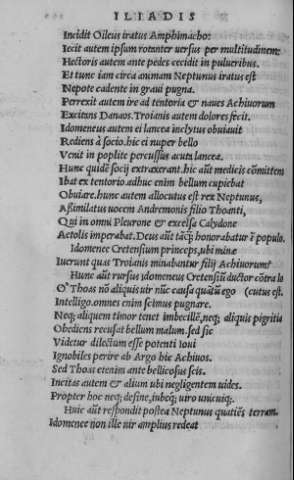 ILIADIS
Incidit Oileus iratus Amphimacho:
Iecit autem ipsum rotanter uersus per multitudinem:
Hectoris autem ante pedes cecidit in pulueribus.
Et tunc iam circa animam Neptunus iratus est
Nepote cadente in graui pugna.
Perrexit autem ire ad tentoria & naues Achiuorum
Excitans Danaos. Troianis autem dolores fecit.
Idomeneus autem ei lancea inclytus obuiauit
Rediens à socio. hic ei nuper bello
Venit in poplite percussus acuta lancea.
Hunc quidē socij extraxerant. hic aūt medicis cōmittens
Ibat ex tentorio. adhuc enim bellum cupiebat
Obuiare. hunc autem allocutus est rex Neptunus,
Assimilatus uocem Andremonis filio Thoanti,
Qui in omni Pleurone & excelsa Calydone
Aetolis imperabat. Deus aūt tāq̃; honorabatur ē populo.
Idomenee Cretensium princeps, ubi minæ
Iuerunt quas Troianis minabantur filij Achiuorum?
Hunc aūt rursus idomeneus Cretensiū ductor cōtra lo
O Thoas nō aliquis uir nūc causa quātū ego (cutus est.
Intelligo. omnes enim scimus pugnare.
Neq; aliquem timor tenet imbecillē, neq; aliquis pigritia
Obediens recusat bellum malum. sed sic
Videtur dilectum esse potenti Ioui
Ignobiles perire ab Argo hic Achiuos.
Sed Thoas etenim ante bellicosus scis.
Incitas autem & alium ubi negligentem uides.
Propter hoc neq; desine, iubeq; uiro unicuiq;.
Huic aūt respondit postea Neptunus quatiēs terram.
Idomenee non ille uir amplius redeat